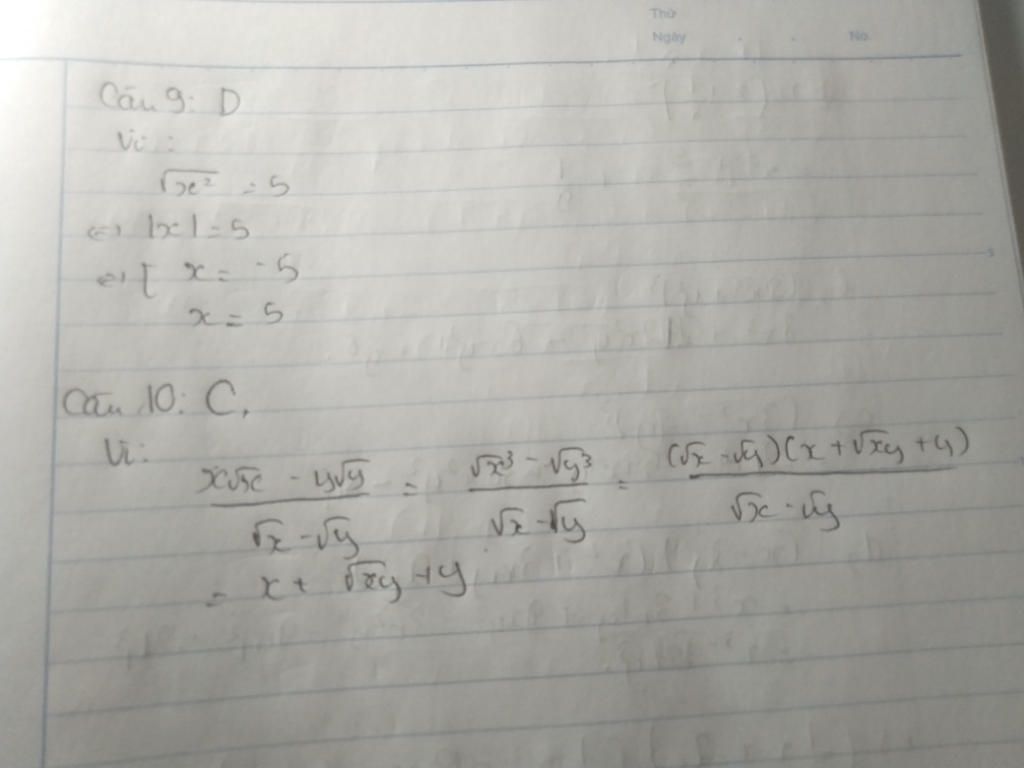 Thứ
Ngày . . No.
Câu 9: D
Vì:
√x² = 5
⇔ |x| = 5
⇔ [ x = -5
x = 5
Câu 10: C.
Vì:
(x√x - y√y)/(√x - √y) = (√x³ - √y³)/(√x - √y) = ((√x - √y)(x + √xy + y))/(√x - √y)
= x + √xy + y